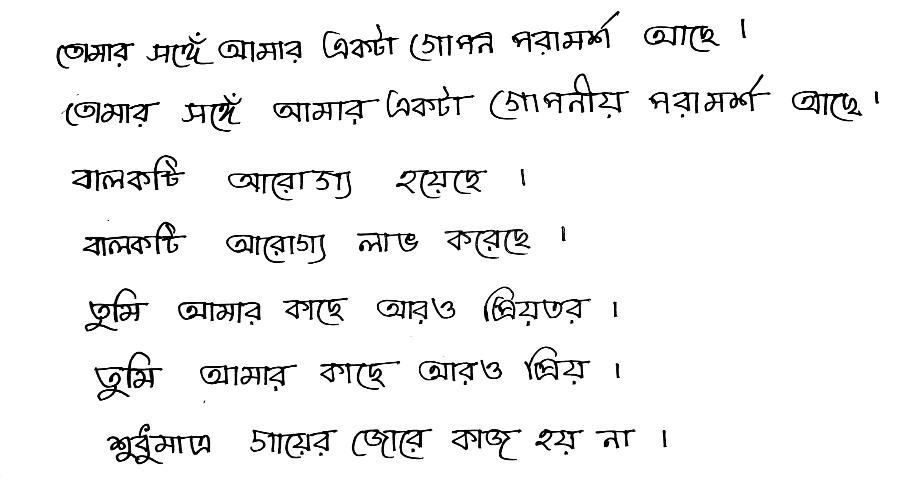 তোমার সঙ্গে আমার একটা গোপন পরামর্শ আছে ।
তোমার সঙ্গে আমার একটা গোপনীয় পরামর্শ আছে ।
বালকটি আরোগ্য হয়েছে ।
বালকটি আরোগ্য লাভ করেছে ।
তুমি আমার কাছে আরও প্রিয়তর ।
তুমি আমার কাছে আরও প্রিয় ।
শুধুমাত্র গায়ের জোরে কাজ হয় না ।